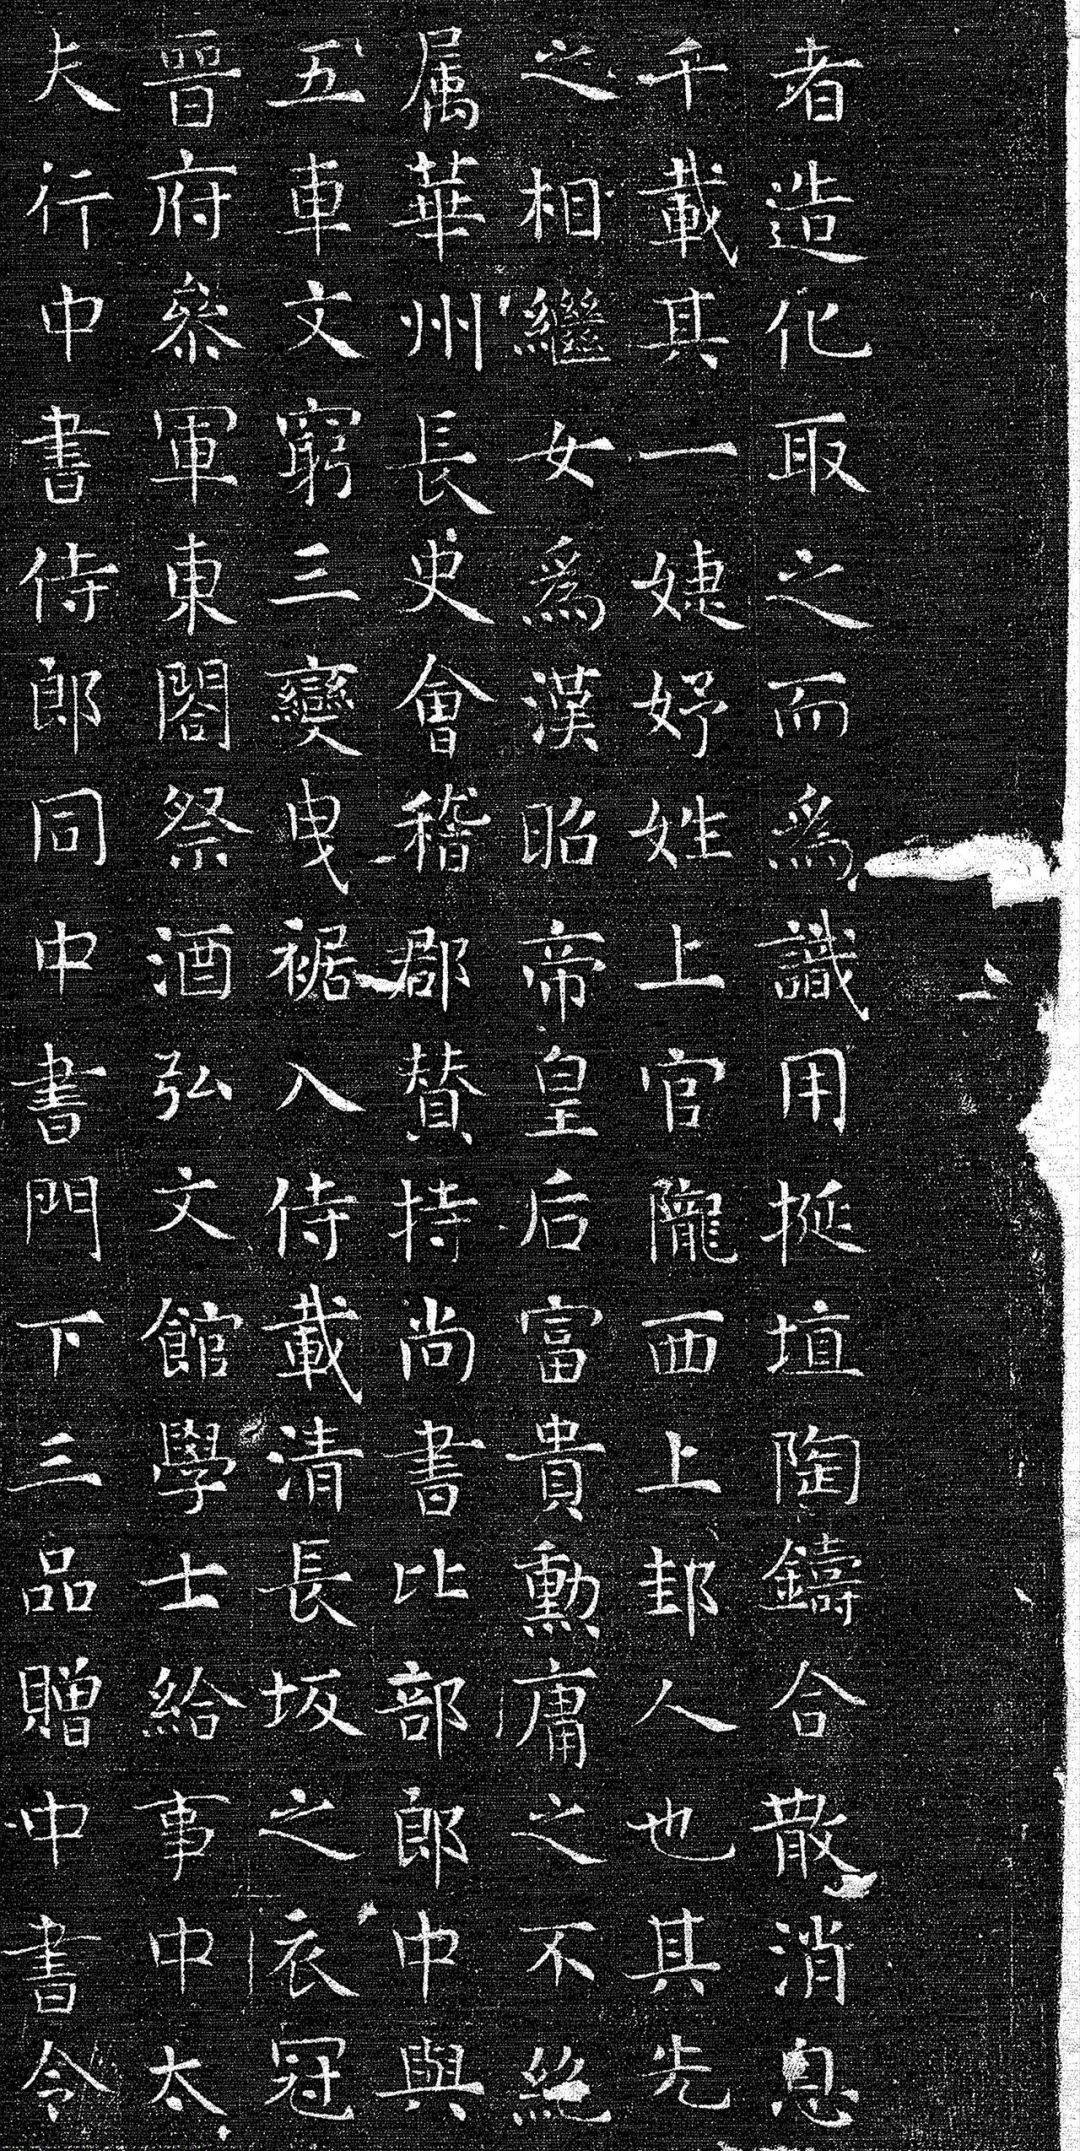 者造化取之而為識用挻埴陶鑄合散消息
千載其一婕妤姓上官隴西上邽人也其先
之相繼女為漢昭帝皇后富貴勳庸之不絕
属華州長史會稽郡賛持尚書比部郎中與
五車文窮三變曳裾入侍載清長坂之衣冠
晉府叅軍東閤祭酒弘文館學士給事中太
夫行中書侍郎同中書門下三品贈中書令